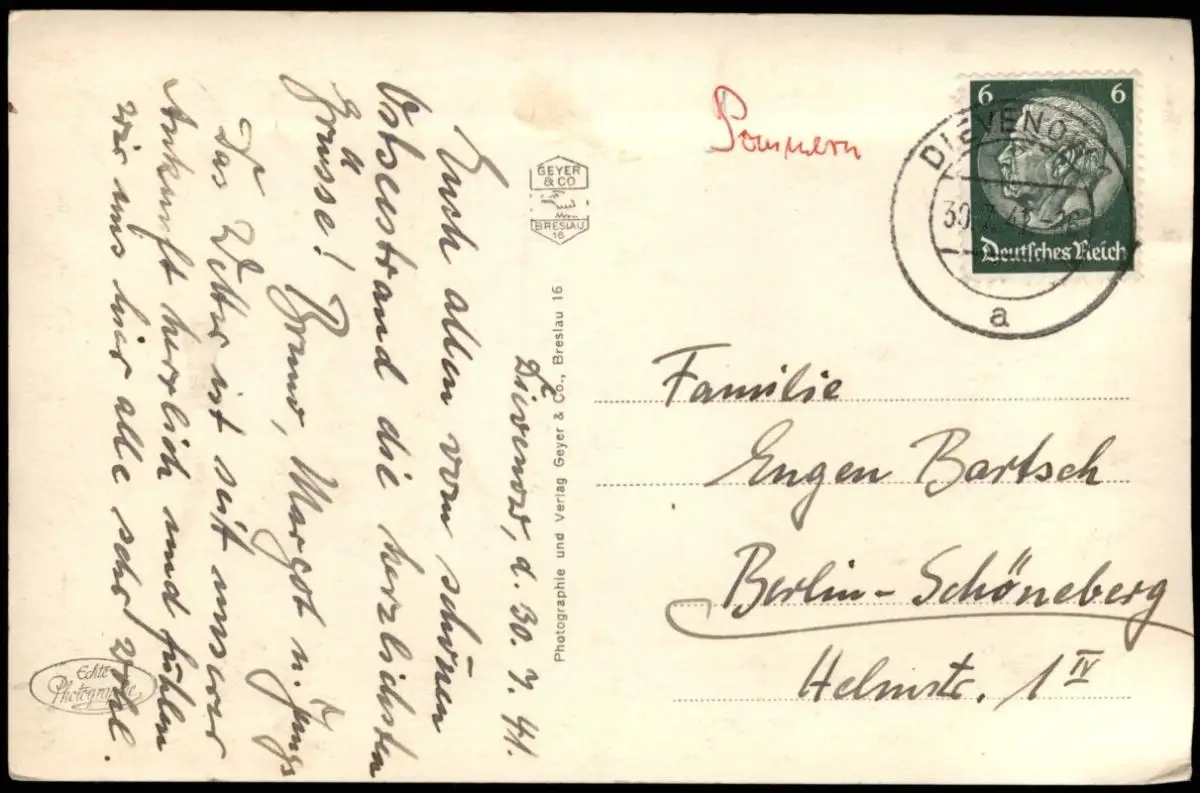 Dievenow, d. 30. 7. 41.
Euch allen vom schönen
Ostseestrand die herzlichsten
Grüsse!
Bruno, Margot u. Jungs
Das Wetter ist seit unserer
Ankunft herrlich und fühlen
wir uns hier alle sehr wohl.
Echte
Photographie
GEYER
& CO
BRESLAU
16
Photographie und Verlag Geyer & Co., Breslau 16
Pommern
6 6
Deutsches Reich
DIEVENOW
30.7.41
a
Familie
Eugen Bartsch
Berlin-Schöneberg
Helmstr. 1 IV